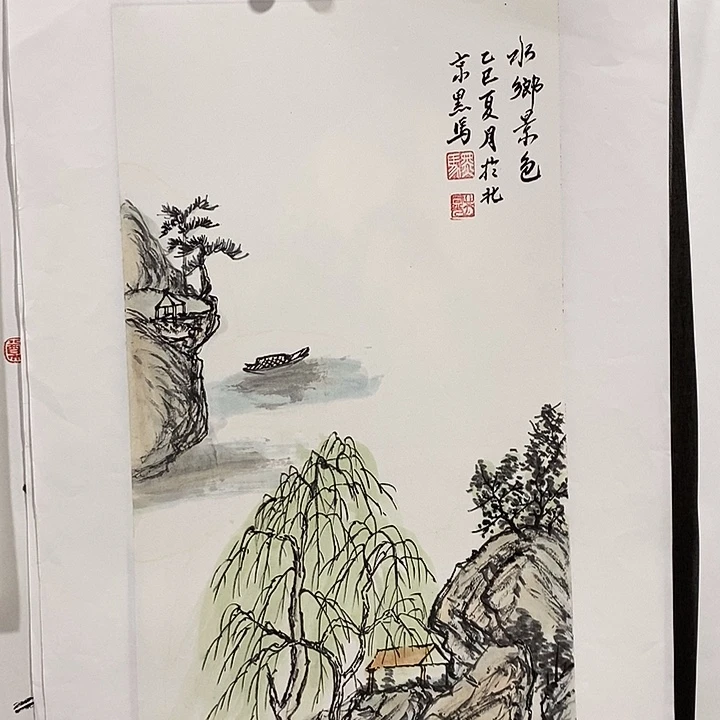 水鄉景色
乙巳夏月於北
京黑馬